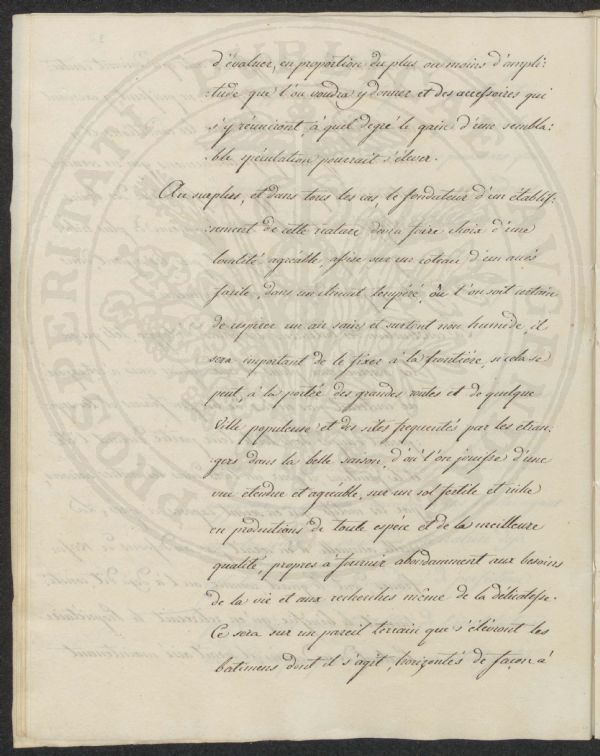 d'évaluer, en proportion du plus ou moins d'ampli:
:tude que l'on voudra y donner et des accessoires qui
s'y réuniront, à quel degré le gain d'une sembla:
:ble spéculation pourrait s'élever.
Au surplus, et dans tous les cas, le fondateur d'un établis:
:sement de cette nature devra faire choix d'une
localité agréable, assise sur un coteau d'un accès
facile, dans un climat tempéré, où l'on soit certain
de respirer un air sain et surtout non humide, il
sera important de le fixer à la frontière, si cela se
peut, à la portée des grandes routes et de quelque
Ville populeuse et des sites fréquentés par les étran:
gers dans la belle saison, d'où l'on jouisse d'une
vue étendue et agréable, sur un sol fertile et riche
en productions de toute espèce et de la meilleure
qualité, propres à fournir abondamment aux besoins
de la vie et aux recherches même de la délicatesse.
Ce sera sur un pareil terrain que s'élèveront les
batimens dont il s'agit, horizontés de façon à
PROSPERITATI PUBLICAE